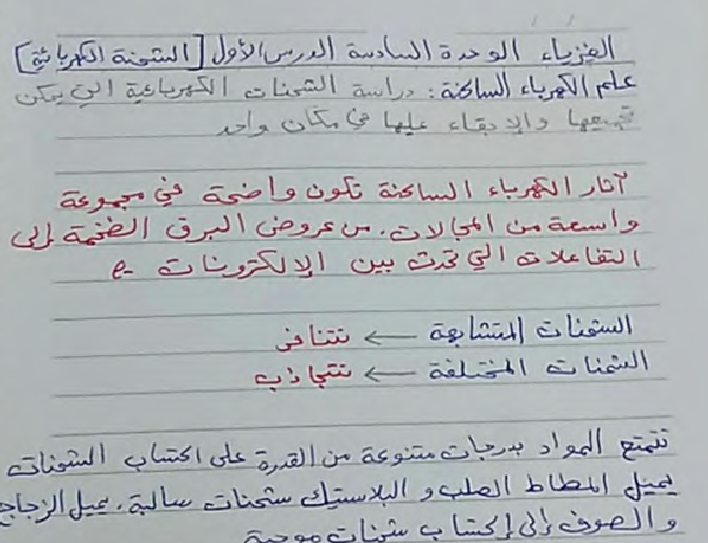 الفيزياء الوحدة السادسة الدرس الأول [الشحنة الكهربائية]
علم الكهرباء الساكنة: دراسة الشحنات الكهربائية التي يمكن
تجميعها والإبقاء عليها في مكان واحد
آثار الكهرباء الساكنة تكون واضحة في مجموعة
واسعة من المجالات. من عروض البرق الضخمة إلى
التفاعلات التي تحدث بين الإلكترونات e-
الشحنات المتشابهة ← تتنافر
الشحنات المختلفة ← تتجاذب
تتمتع المواد بدرجات متنوعة من القدرة على اكتساب الشحنات
يميل المطاط الصلب و البلاستيك شحنات سالبة. يميل الزجاج
و الصوف إلى إكتساب شحنات موجبة